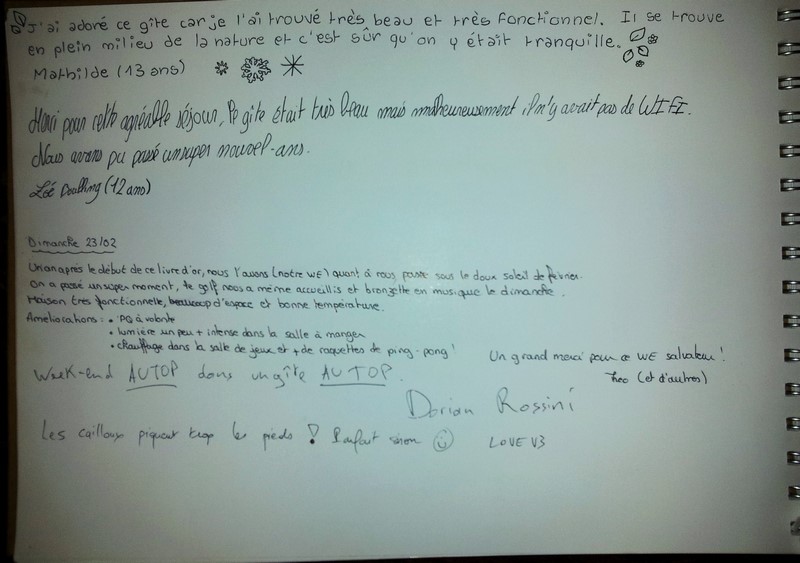 J'ai adoré ce gîte car je l'ai trouvé très beau et très fonctionnel. Il se trouve
en plein milieu de la nature et c'est sûr qu'on y était tranquille.
Mathilde (13 ans)
Merci pour cette agréable séjour, le gîte était très beau mais malheureusement il n'y avait pas de WIFI.
Nous avons pu passé un super nouvel-ans.
Zoé (12 ans)
Dimanche 23/02
Un an après le début de ce livre d'or, nous l'avons (notre WE) quant à nous passé sous le doux soleil de février.
On a passé un super moment, le golf nous a même accueillis et bronzette en musique le dimanche.
Maison très fonctionnelle, beaucoup d'espace et bonne température.
Améliorations : • PQ à volonté
• lumière un peu + intense dans la salle à manger
• chauffage dans la salle de jeux et + de raquettes de ping-pong !
Un grand merci pour ce WE salvateur !
Théo (et d'autres)
Week-end AUTOP dans un gîte AUTOP.
Dorian Rossini
Les cailloux piquent trop les pieds ! Parfait sinon ☺ LOVE V3